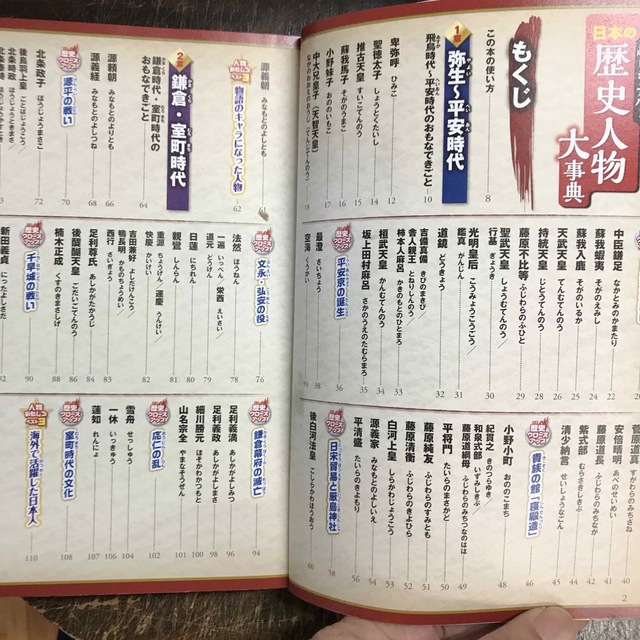 日本の
歴史人物
大事典
もくじ
この本の使い方 8
1章 弥生〜平安時代
飛鳥時代〜平安時代のおもなできごと 10
卑弥呼 ひみこ 12
聖徳太子 しょうとくたいし 14
推古天皇 すいこてんのう 16
蘇我馬子 そがのうまこ 15
小野妹子 おののいもこ 17
中大兄皇子(天智天皇)
なかのおおえのおうじ(てんじてんのう) 18
中臣鎌足 なかとみのかまたり
蘇我蝦夷 そがのえみし
蘇我入鹿 そがのいるか
天武天皇 てんむてんのう
持統天皇 じとうてんのう
藤原不比等 ふじわらのふひと
聖武天皇 しょうむてんのう
行基 ぎょうき
光明皇后 こうみょうこうごう
鑑真 がんじん
道鏡 どうきょう 32
吉備真備 きびのまきび
舎人親王 とねりしんのう
柿本人麻呂 かきのもとのひとまろ 33
桓武天皇 かんむてんのう 34
坂上田村麻呂 さかのうえのたむらまろ 35
歴史クローズアップ 平安京の誕生 36
最澄 さいちょう 38
空海 くうかい
菅原道真
安倍晴明 あべのせいめい 41
藤原道長 ふじわらのみちなが
紫式部 むらさきしきぶ
清少納言 せいしょうなごん 45
歴史クローズアップ 貴族の館「寝殿造」 46
小野小町 おののこまち 48
紀貫之 きのつらゆき
和泉式部 いずみしきぶ
藤原道綱母 ふじわらのみちつなのはは
平将門 たいらのまさかど 50
藤原純友 ふじわらのすみとも 51
藤原清衡 ふじわらのきよひら 52
白河上皇 しらかわじょうこう 53
源義家 みなもとのよしいえ 54
平清盛 たいらのきよもり 56
歴史クローズアップ 日宋貿易と厳島神社 58
後白河法皇 ごしらかわほうおう 60
2
源義朝 みなもとのよしとも 61
人物おもしろベスト3 物語のキャラになった人物 62
2章 鎌倉・室町時代
鎌倉時代・室町時代の
おもなできごと 64
源頼朝 みなもとのよりとも 66
源義経 みなもとのよしつね 68
歴史クローズアップ 源平の戦い 70
北条政子 ほうじょうまさこ 72
後鳥羽上皇 ごとばじょうこう
北条時政 ほうじょうときまさ
歴史クローズアップ 文永・弘安の役 76
法然 ほうねん 78
一遍 いっぺん/栄西 えいさい/
道元 どうげん 79
日蓮 にちれん 80
親鸞 しんらん 81
重源 ちょうげん/運慶 うんけい/
快慶 かいけい 82
吉田兼好 よしだけんこう/
鴨長明 かものちょうめい/
西行 さいぎょう 83
足利尊氏 あしかがたかうじ 84
後醍醐天皇 ごだいごてんのう 86
楠木正成 くすのきまさしげ 88
歴史クローズアップ 千早城の戦い 90
新田義貞 にったよしさだ 92
歴史クローズアップ 鎌倉幕府の滅亡 94
足利義満 あしかがよしみつ 96
足利義政 あしかがよしまさ 98
細川勝元 ほそかわかつもと 100
山名宗全 やまなそうぜん 101
歴史クローズアップ 応仁の乱 102
雪舟 せっしゅう 104
一休 いっきゅう 106
蓮如 れんにょ 107
歴史クローズアップ 室町時代の文化 108
人物おもしろベスト3 海外で活躍した日本人 110